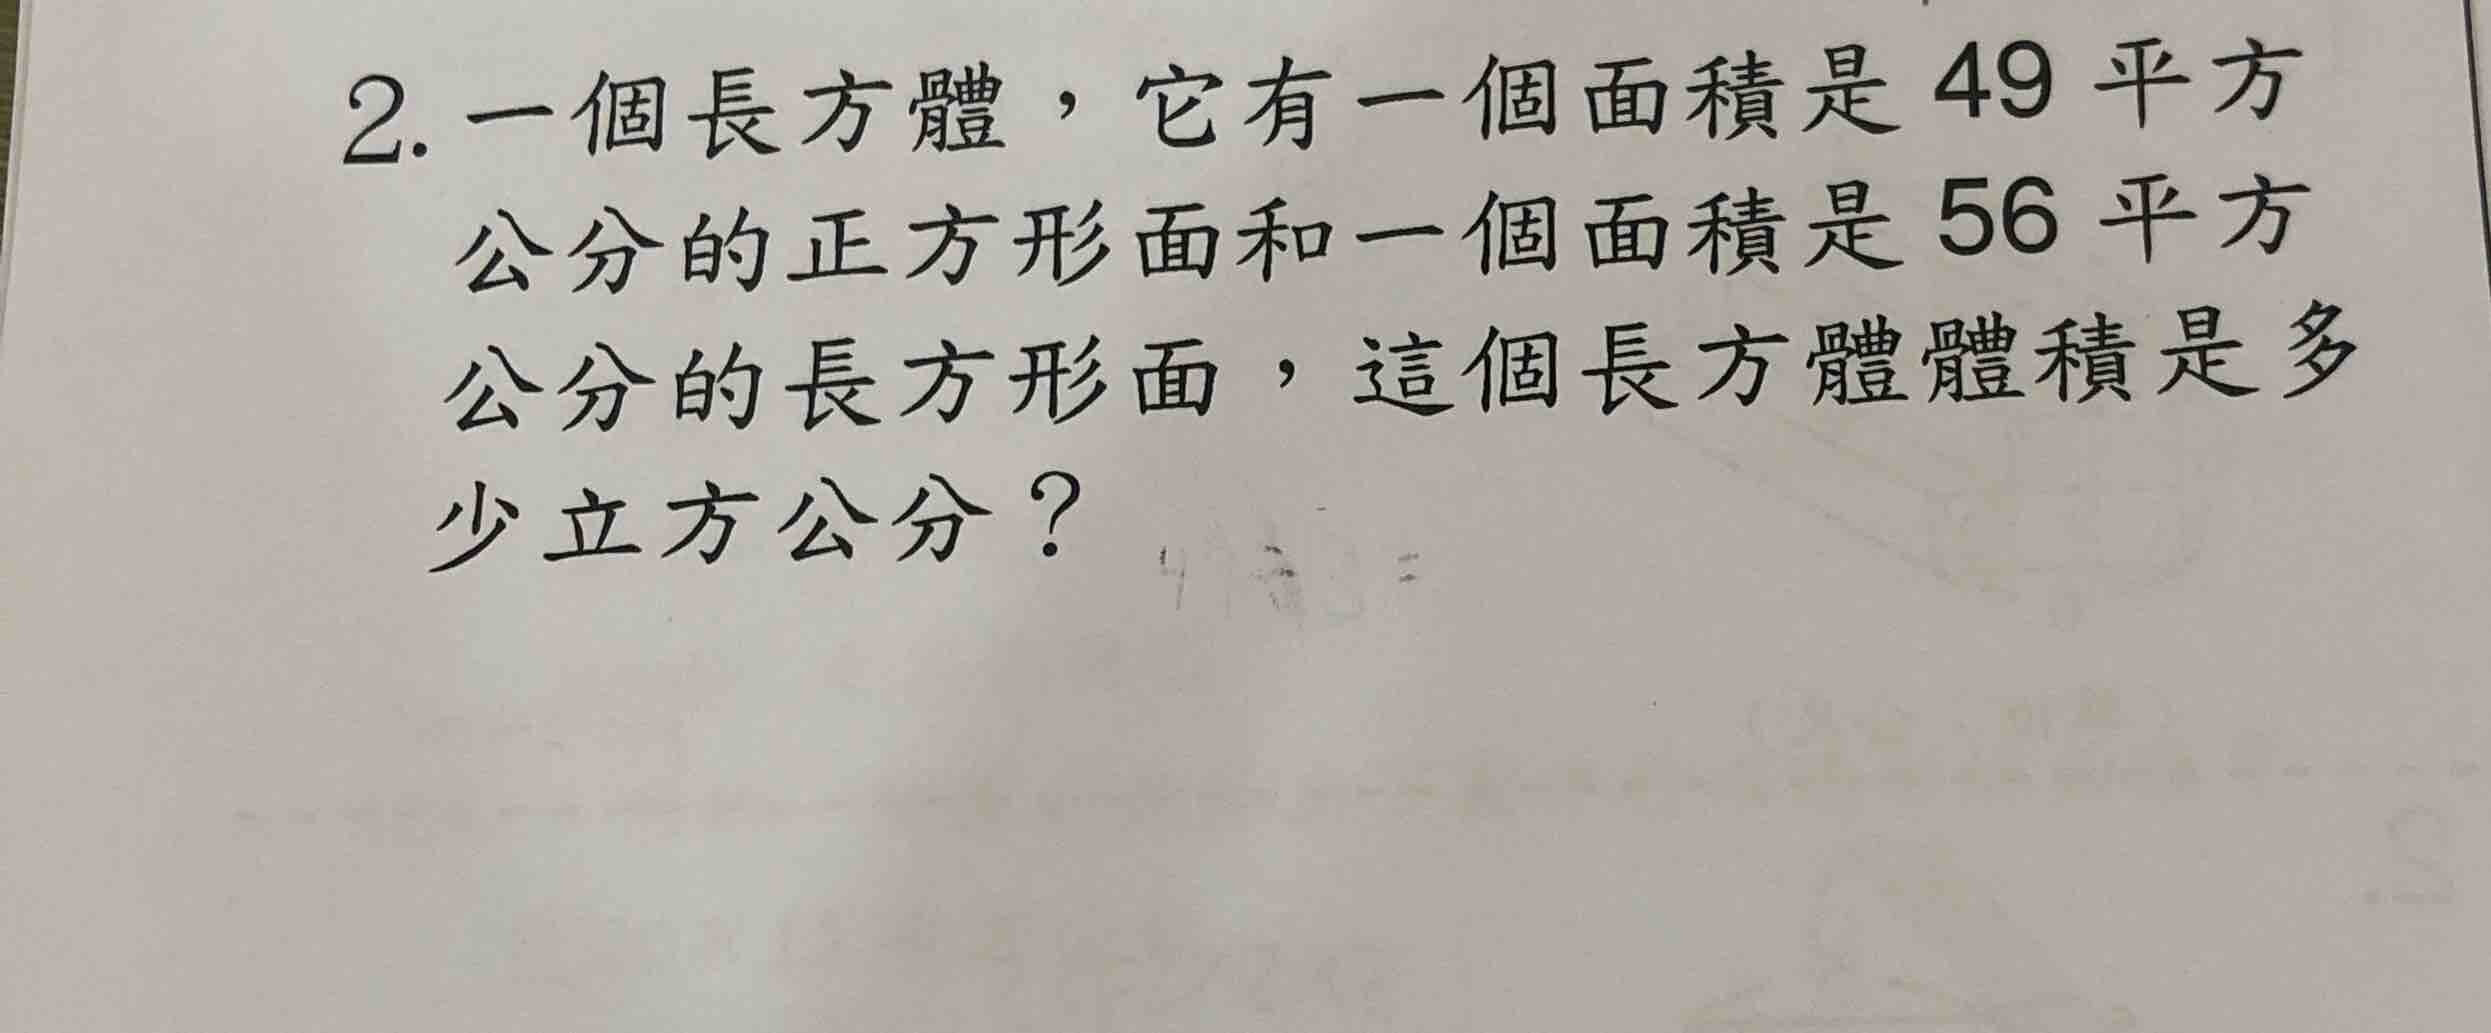 2. 一個長方體，它有一個面積是 49 平方
公分的正方形面和一個面積是 56 平方
公分的長方形面，這個長方體體積是多
少立方公分？